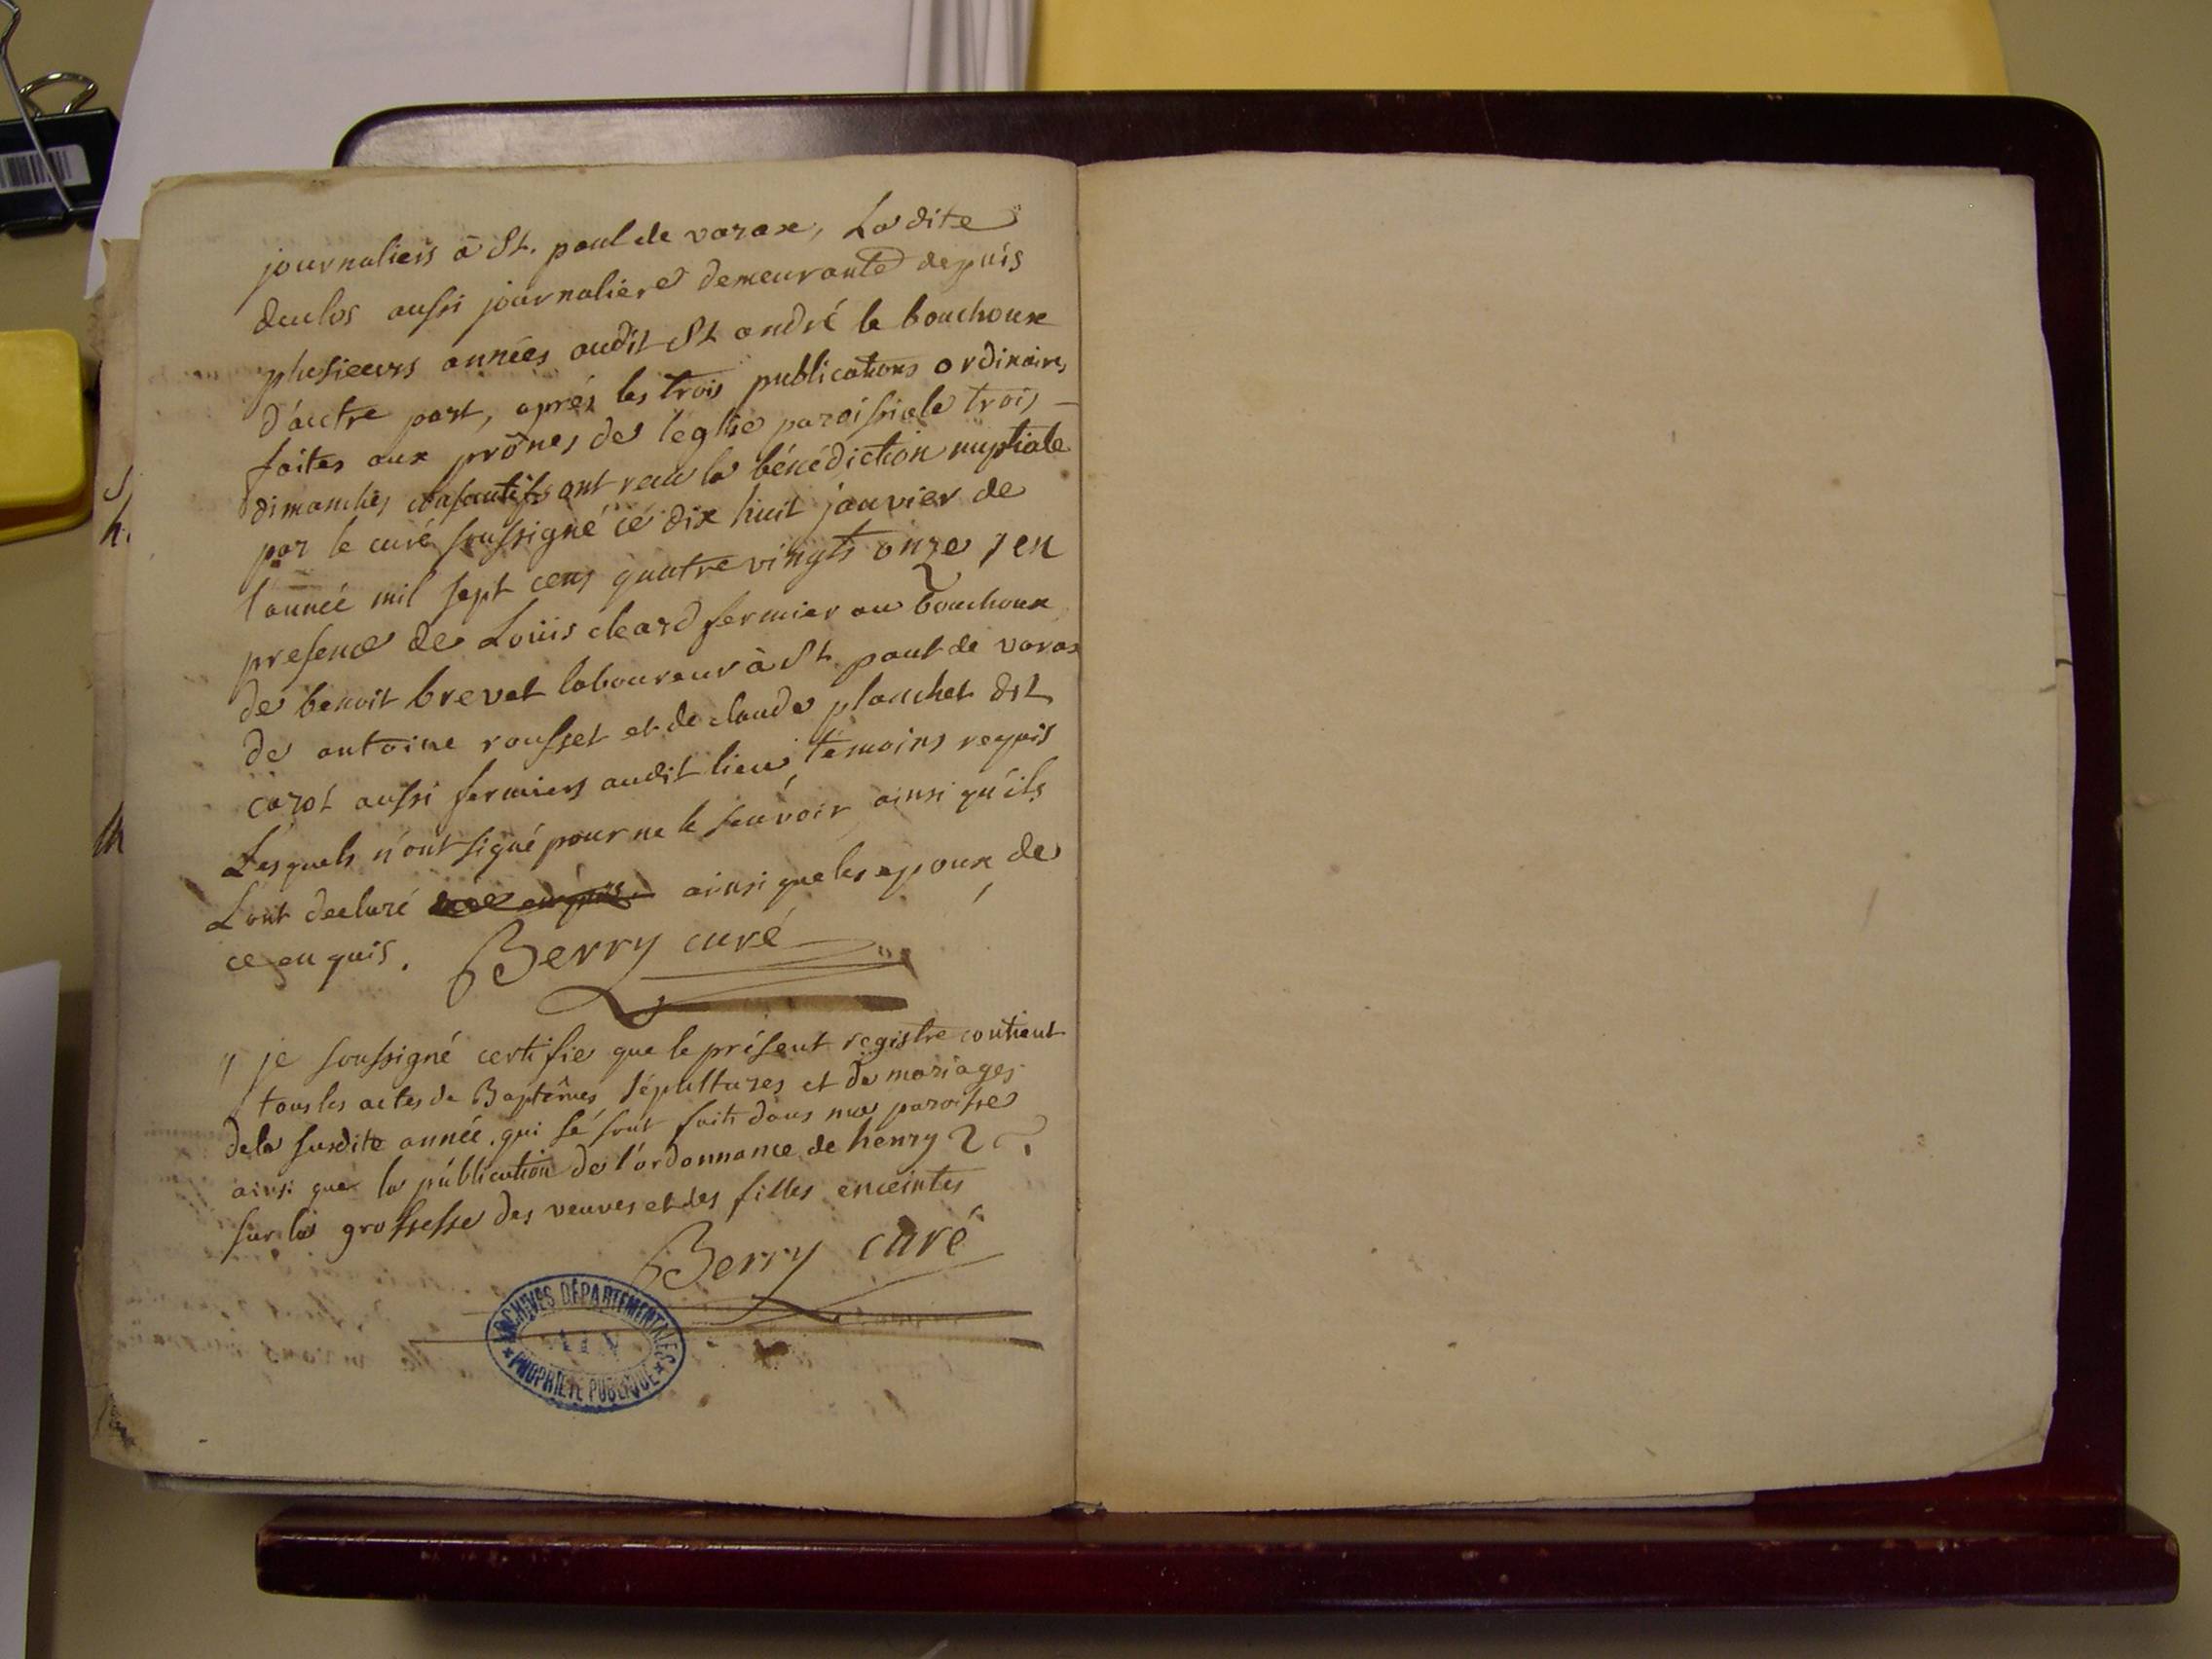 journaliers à St. paul de varax, La dite
duclos aussi journaliere demeurante depuis
plusieurs années audit St andré le bouchoux
d'autre part, aprés les trois publications ordinaires
faites aux prônes de l'eglise paroissiale trois
dimanches consecutifs ont recu la bénédiction nuptiale
par le curé soussigné ce dix huit janvier de
l'année mil sept cens quatre vingts onze, en
presence de Loüis cleard fermier au bouchoux
de benoit brevet laboureur à St paul de varax
de antoine rousset et de claude planchet dit
carot aussi fermiers audit lieu, témoins requis
Lesquels n'ont signé pour ne le scavoir ainsi qu'ils
L'ont declaré ainsi que les epoux de
ce enquis. Berry curé
je soussigné certifie que le présent registre contient
tous les actes de Baptêmes sépultures et de mariages
de la susdite année, qui se sont faits dans ma paroisse
ainsi que la públication de l'ordonnance de henry 2
sur la grossesse des veuves et des filles enceintes
Berry curé
ARCHIVES DÉPARTEMENTALES
AIN
PROPRIÉTÉ PUBLIQUE